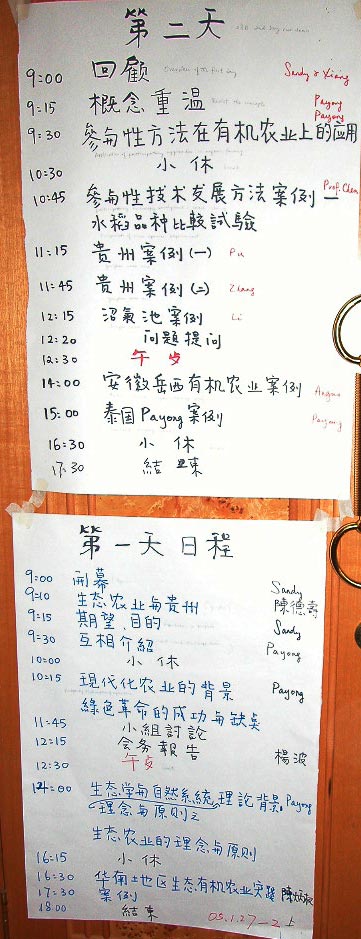 第二天
9:00 回顧 Sandy & Xiang
9:15 概念重温 Payong
9:30 參与性方法在有机农业上的应用 Payong
10:30 小休
10:45 參与性技术发展方法案例一 Prof. Chen
水稻品种比較試驗
11:15 贵州案例(一) Pu
11:45 贵州案例(二) Zhang
12:15 沼氣池案例 Li
12:20 问题提问
12:30 午歺
14:00 安徽岳西有机农业案例 Angus
15:00 泰国Payong案例 Payong
16:30 小休
17:30 結束
第一天日程
9:00 開幕 Sandy
9:10 生态农业与贵州 陳德壽
9:15 期望、目的 Sandy
9:30 互相介紹 Payong
10:00 小休
10:15 現代化农业的背景 Payong
綠色革命的成功与缺点
11:45 小組討論
12:15 会务報告 楊波
12:30 午歺
14:00 生态学与自然系統理論背景 Payong
理念与原则之
生态农业的理念与原则
16:15 小休
16:30 华南地区生态有机农业实践
17:30 案例
18:00 結束 05.1.27-2上